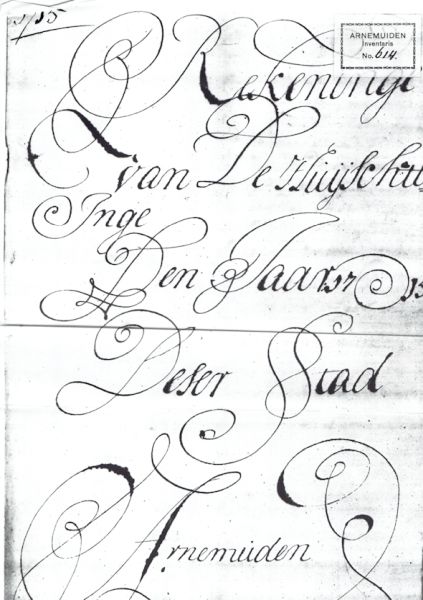 1715
ARNEMUIDEN
Inventaris
No. 614.
Rekeninge
van De Huijschatt
Inge
Den Jaar 1715
Deser Stad
Arnemuiden